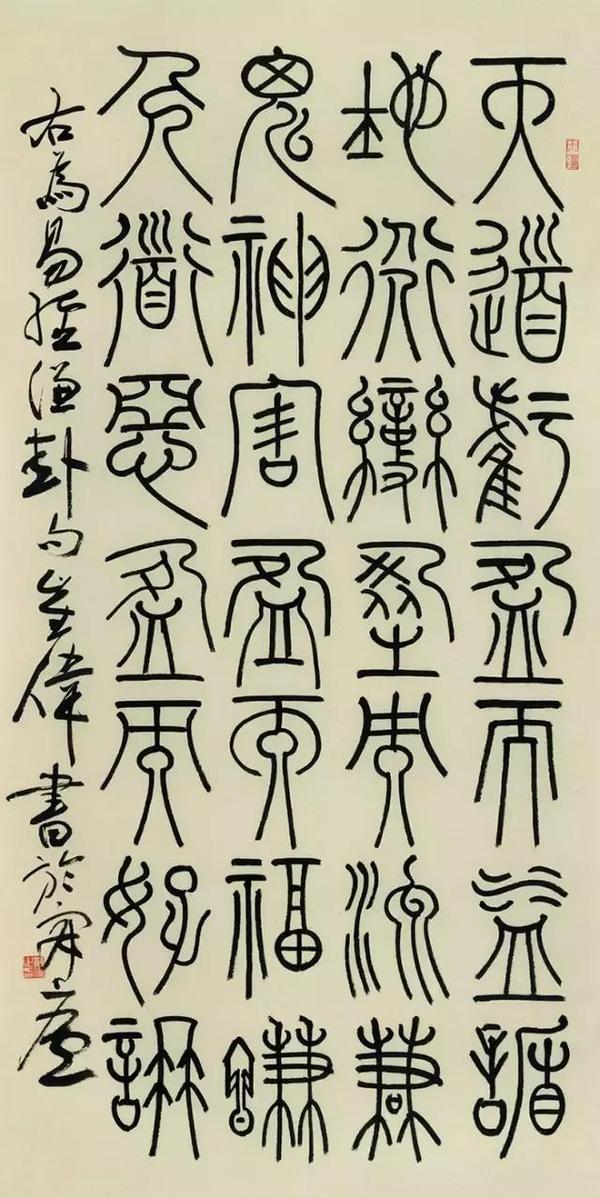 天道虧盈而益謙
地道變盈而流謙
鬼神害盈而福謙
人道惡盈而好謙
右為易經謙卦句 偉書於